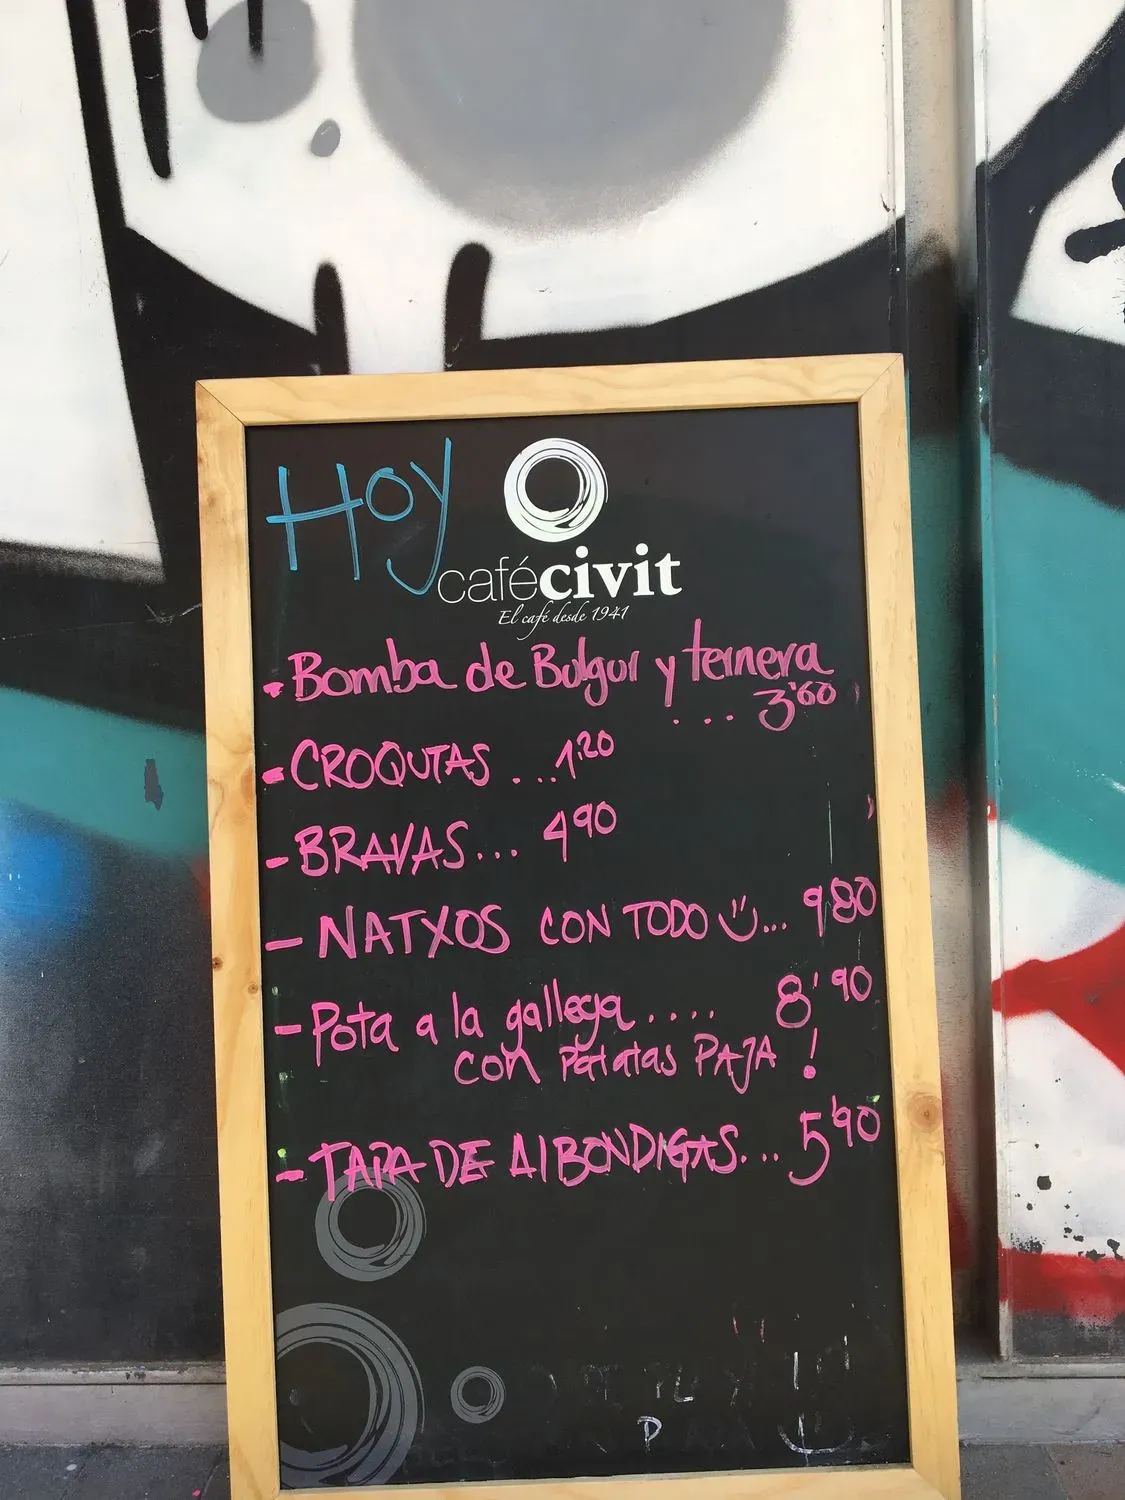 Hoy
cafécivit
El café desde 1941
• Bomba de Bulgur y ternera
... 3'60
- CROQUTAS ... 1'20
- BRAVAS... 4'90
- NATXOS CON TODO ... 9'80
- Pota a la gallega .... 8'90
con Patatas PAJA !
- TAPA DE AlBONDIGAS... 5'90
P